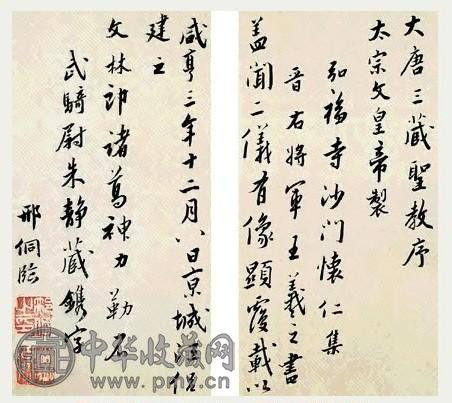 大唐三藏聖教序
太宗文皇帝製
弘福寺沙門懷仁集
晋右將軍王羲之書
盖聞二儀有像顯覆載以
咸亨三年十二月八日京城法侣
建立
文林郎諸葛神力勒石
武騎尉朱静藏鐫字
邢侗臨
中华收藏网
www.pmrv.cn